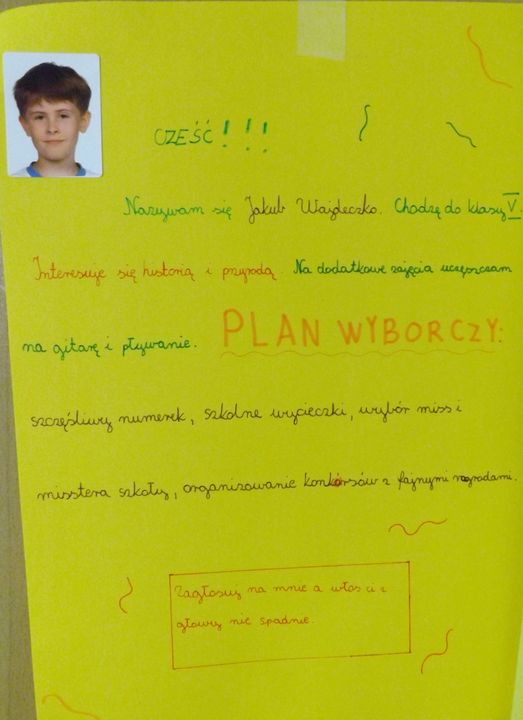 CZEŚĆ!!!
Nazywam się Jakub Wajdeczko. Chodzę do klasy V.
Interesuje się historią i przyrodą. Na dodatkowe zajęcia uczęszczam
na gitarę i pływanie. PLAN WYBORCZY:
szczęśliwy numerek, szkolne wycieczki, wybór miss i
misstera szkoły, organizowanie konkórsów z fajnymi nagrodami.
Zagłosuj na mnie a włos ci z
głowy nie spadnie.